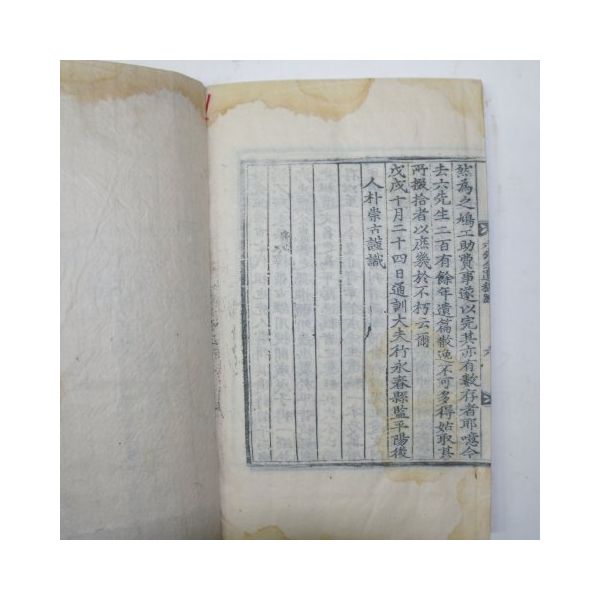 然為之鳩工助費事遂以完其亦有數存者耶噫今
去六先生二百有餘年遺篇散逸不可多得姑取其
所掇拾者以庶幾於不朽云爾
戊戌十月二十四日通訓大夫行永春縣監平陽後
人朴崇古謹識